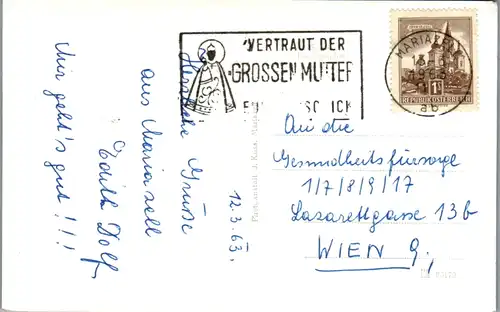 Herzliche Grüße
aus Mariazell
Edith Dolf
Mir geht's gut!!!
12.3.63.
VERTRAUT DER
GROSSEN MUTTER
MARIAZELL
REPUBLIK ÖSTERREICH
An die
Gesundheitsfürsorge
1/7/8/9/17
Lazarettgasse 13b
WIEN 9,